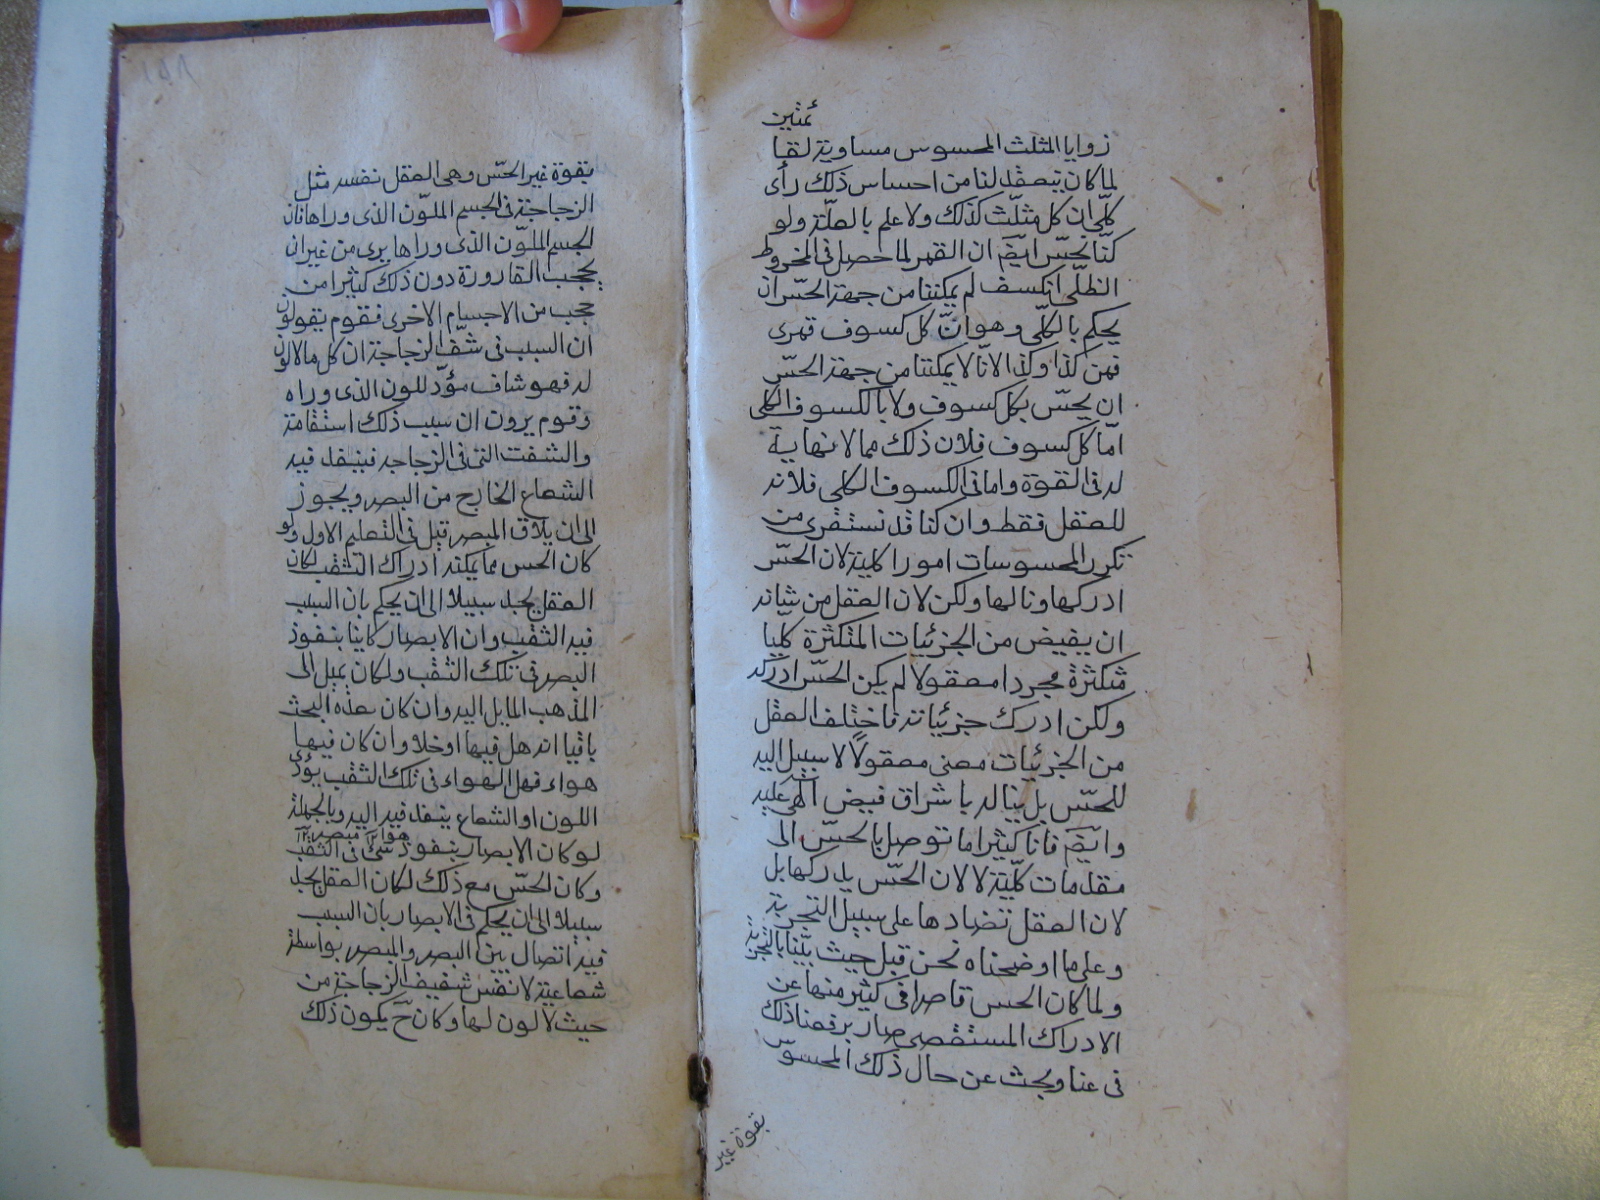 زوايا المثلث المحسوس مساوية لقا
ئمتين
لما كان يتعقد لنا من احساس ذلك رأى
كلّى ان كل مثلّث كذلك ولا علم بالعلّة ولو
كنّا نحسّ ايضا ان القمر لما حصل فى المخروط
الظلّى انكسف لم يمكننا من جهة الحسّ ان
يحكم بالكلّى وهو انّ كل كسوف قمرى
فمن كذا وكذا لانّا لا يمكننا من جهة الحسّ
ان يحسّ بكل كسوف ولا بالكسوف الكلى
امّا كل كسوف فلان ذلك مما لا نهاية
له فى القوة واما فى الكسوف الكلى فلانه
للعقل فقط وان كنا قد نستقرى من
تكرر المحسوسات امورا كلية لا لان الحسّ
ادركها ونالها ولكن لان العقل من شانه
ان يفيض من الجزئيات المتكثرة كليا
متكثرة مجردا معقولا لم يكن الحسّ ادركه
ولكن ادرك جزئياته فاختلف العقل
من الجزئيات معنى معقولاً لا سبيل اليه
للحسّ بل يناله باشراق فيض الهى عليه
وايضا فانا كثيرا ما توصل بالحسّ الى
مقدمات كلّية لا لان الحسّ يدركها بل
لان العقل تضادها على سبيل التجربة
وعلى ما اوضحناه نحن قبل حيث بيّنا بالتجربة
ولما كان الحس قاصرا فى كثير منها عن
الادراك المستقصى صار يرقعنا ذلك
فى عنا وبحث عن حال ذلك المحسوّس
بقوة غير
بقوة غير الحسّ وهى العقل نفسه مثل
الزجاجة فى الجسم الملوّن الذى وراها فان
الجسم الملوّن الذى وراها يرى من غير ان
يحجب القارورة دون ذلك كثيرا من
حجب من الاجسام الاخرى فقوم يقولون
ان السبب فى شفّ الزجاجة ان كل ما لا لون
له فهو شاف مؤدّ للون الذى وراه
وقوم يرون ان سبب ذلك استقامة
والشقت التى فى الزجاجه فينفد فيه
الشعاع الخارج من البصر ويجوز
الى ان يلاق المبصر قيل فى التعليم الاول ولو
كان الحس مما يمكنه ادراك الثقب لكان
العقل يجد سبيلا الى ان يحكم بان السبب
فيه الثقب وان الابصار كاينا بنفوذ
البصر فى تلك الثقب ولكان يميل الى
المذهب المايل اليه وان كان هذه البحث
باقيا انه هل فيها او خلا وان كان فيها
هواء فهل الهواء فى تلك الثقب يؤدّى
اللون او الشعاع ينفذ فيه اليه وبالجملة
لو كان الابصار بنفوذ شىء فى الثقب
وكان الحسّ مع ذلك لكان العقل يجد
سبيلا الى ان يحكم فى الابصار بان السبب
فيه اتصال بين البصر والمبصر بواسطة
شعاعية لا نفس شفيف الزجاجة من
حيث لا لون لها وكان ح يكون ذلك